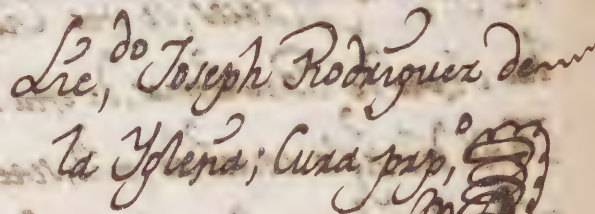 Lic,do Joseph Rodriguez de
la Yglesia; Cura prp,o